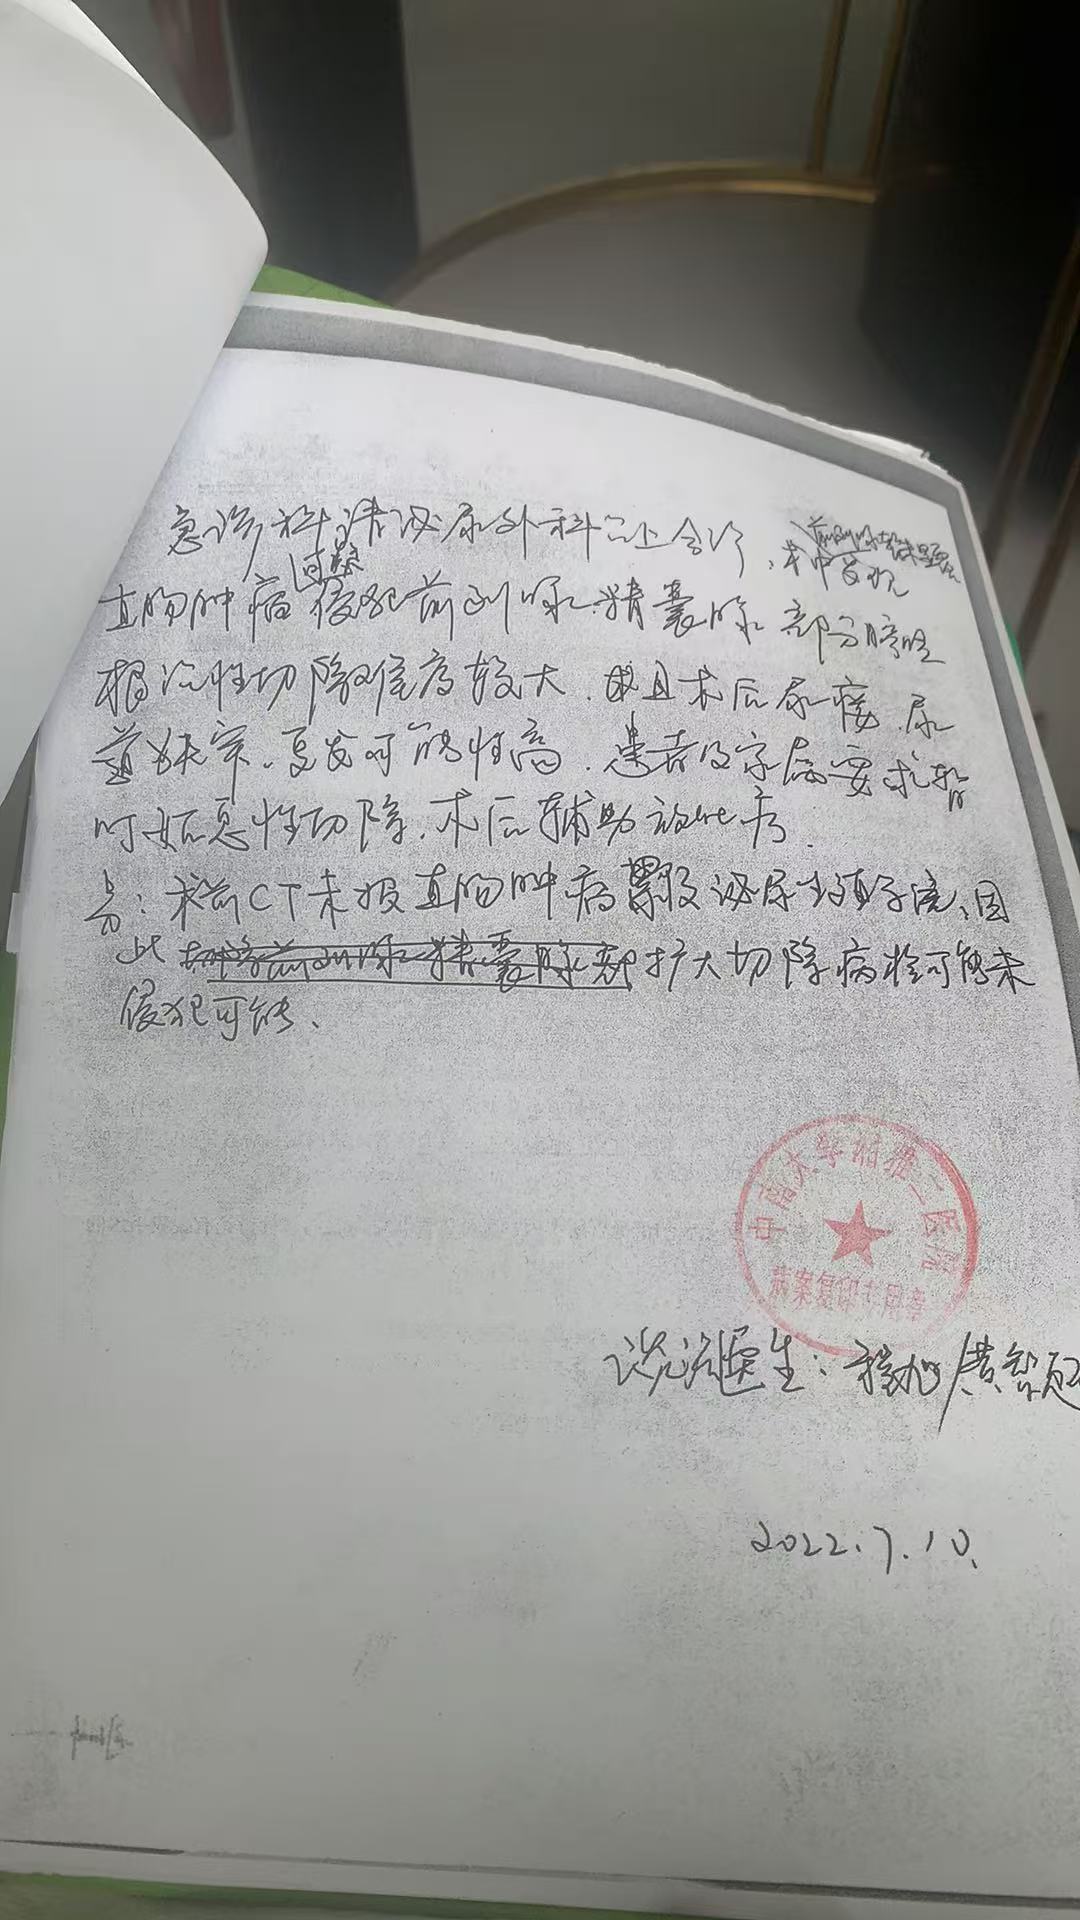 急诊科请泌尿外科台上会诊、术中发现
直肠肿瘤侵犯前列腺精囊腺部分膀胱
根治性切除难度较大.且术后尿瘘.尿
道狭窄.复发可能性高.患者及家属要求暂
时姑息性切除.术后辅助放化疗.
另:术前CT未报直肠肿瘤累及泌尿生殖系统、因
此 扩大切除病检可能未
侵犯可能、
中南大学湘雅二医院
病案复印专用章
谈话医生:
2022.7.10.